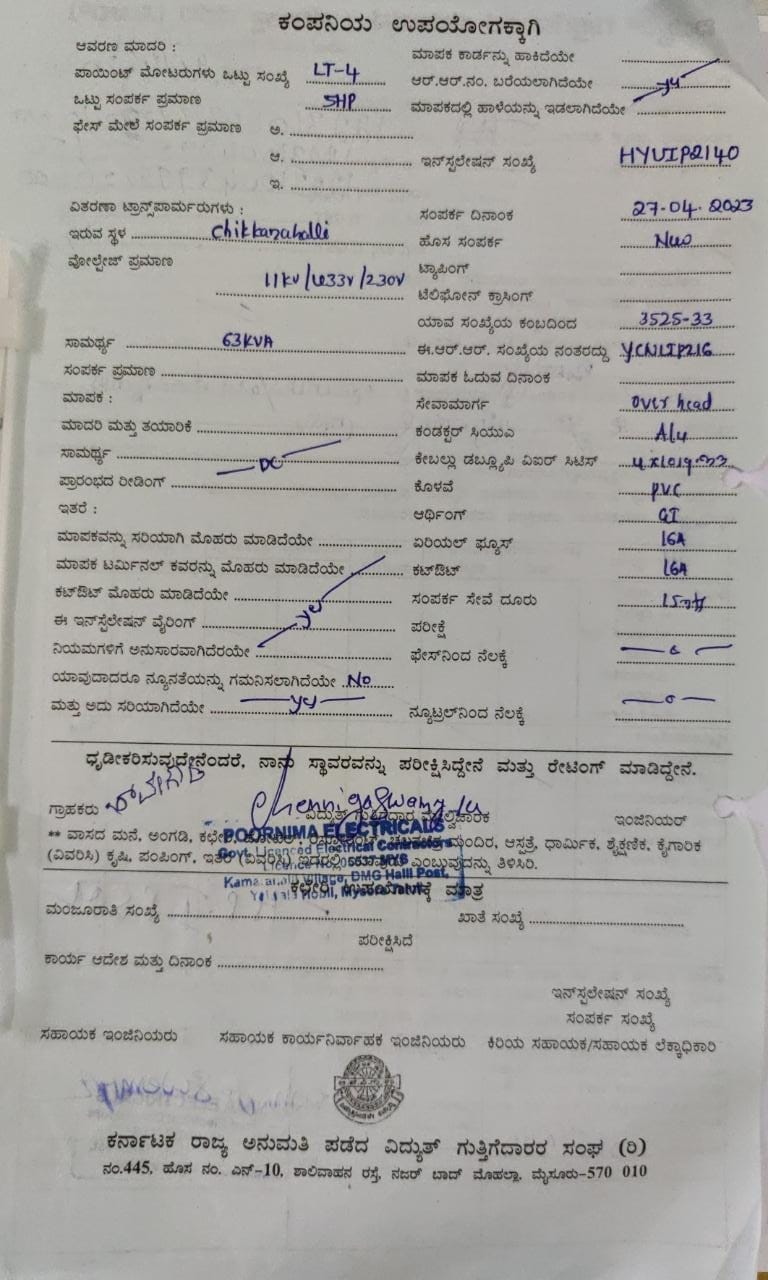 ಕಂಪನಿಯ ಉಪಯೋಗಕ್ಕಾಗಿ
ಆವರಣ ಮಾದರಿ :
ಮಾಪಕ ಕಾರ್ಡನ್ನು ಹಾಕಿದೆಯೇ
ಪಾಯಿಂಟ್ ಮೋಟರುಗಳು ಒಟ್ಟು ಸಂಖ್ಯೆ LT-4
ಆರ್.ಆರ್.ನಂ. ಬರೆಯಲಾಗಿದೆಯೇ
ಒಟ್ಟು ಸಂಪರ್ಕ ಪ್ರಮಾಣ 5HP
ಮಾಪಕದಲ್ಲಿ ಹಾಳೆಯನ್ನು ಇಡಲಾಗಿದೆಯೇ
ಫೇಸ್ ಮೇಲೆ ಸಂಪರ್ಕ ಪ್ರಮಾಣ ಅ.
ಆ.
ಇನ್ಸ್ಟಲೇಷನ್ ಸಂಖ್ಯೆ HYUIP2140
ಇ.
ವಿತರಣಾ ಟ್ರಾನ್ಸ್‌ಪಾರ್ಮರುಗಳು :
ಸಂಪರ್ಕ ದಿನಾಂಕ 27-04-2023
ಇರುವ ಸ್ಥಳ Chikkanahalli
ಹೊಸ ಸಂಪರ್ಕ
ವೋಲ್ಟೇಜ್ ಪ್ರಮಾಣ 11kv/433v/230v
ಟ್ಯಾಪಿಂಗ್
ಟೆಲಿಫೋನ್ ಕ್ರಾಸಿಂಗ್
ಯಾವ ಸಂಖ್ಯೆಯ ಕಂಬದಿಂದ 3525-33
ಸಾಮರ್ಥ್ಯ 63KVA
ಈ.ಆರ್.ಆರ್. ಸಂಖ್ಯೆಯ ನಂತರದ್ದು YCNLIP216
ಸಂಪರ್ಕ ಪ್ರಮಾಣ
ಮಾಪಕ ಓದುವ ದಿನಾಂಕ
ಮಾಪಕ :
ಸೇವಾಮಾರ್ಗ over head
ಮಾದರಿ ಮತ್ತು ತಯಾರಿಕೆ
ಕಂಡಕ್ಟರ್ ಸಿಯುಎ Alu
ಸಾಮರ್ಥ್ಯ DC
ಕೇಬಲ್ಲು ಡಬ್ಲ್ಯೂಪಿ ವಿಐರ್ ಸಿಟಿಸ್
ಪ್ರಾರಂಭದ ರೀಡಿಂಗ್
ಕೊಳವೆ PVC
ಇತರೆ :
ಆರ್ಥಿಂಗ್ GI
ಮಾಪಕವನ್ನು ಸರಿಯಾಗಿ ಮೊಹರು ಮಾಡಿದೆಯೇ
ಏರಿಯಲ್ ಫ್ಯೂಸ್ 16A
ಮಾಪಕ ಟರ್ಮಿನಲ್ ಕವರನ್ನು ಮೊಹರು ಮಾಡಿದೆಯೇ
ಕಟ್‌ಔಟ್ 16A
ಕಟ್‌ಔಟ್ ಮೊಹರು ಮಾಡಿದೆಯೇ
ಸಂಪರ್ಕ ಸೇವೆ ದೂರು
ಈ ಇನ್ಸ್ಟಲೇಷನ್ ವೈರಿಂಗ್
ಪರೀಕ್ಷೆ
ನಿಯಮಗಳಿಗೆ ಅನುಸಾರವಾಗಿದೆರಯೇ
ಫೇಸ್‌ನಿಂದ ನೆಲಕ್ಕೆ
ಯಾವುದಾದರೂ ನ್ಯೂನತೆಯನ್ನು ಗಮನಿಸಲಾಗಿದೆಯೇ No
ಮತ್ತು ಅದು ಸರಿಯಾಗಿದೆಯೇ
ನ್ಯೂಟ್ರಲ್‌ನಿಂದ ನೆಲಕ್ಕೆ
ಧೃಡೀಕರಿಸುವುದೇನೆಂದರೆ, ನಾನು ಸ್ಥಾವರವನ್ನು ಪರೀಕ್ಷಿಸಿದ್ದೇನೆ ಮತ್ತು ರೇಟಿಂಗ್ ಮಾಡಿದ್ದೇನೆ.
ಗ್ರಾಹಕರು
ಇಂಜಿನಿಯರ್
** ವಾಸದ ಮನೆ, ಅಂಗಡಿ, ಮಂದಿರ, ಆಸ್ಪತ್ರೆ, ಧಾರ್ಮಿಕ, ಶೈಕ್ಷಣಿಕ, ಕೈಗಾರಿಕ
POORNIMA ELECTRICALS
Govt. Licenced Electrical Contractors
(ವಿವರಿಸಿ) ಕೃಷಿ, ಪಂಪಿಂಗ್, ಇತರೆ (ವಿವರಿಸಿ) ಎಂಬುವುದನ್ನು ತಿಳಿಸಿರಿ.
Village, DMG Halli Post,
Hobli, Mysore Taluk
ಕಛೇರಿ ಉಪಯೋಗಕ್ಕೆ ಮಾತ್ರ
ಮಂಜೂರಾತಿ ಸಂಖ್ಯೆ
ಖಾತೆ ಸಂಖ್ಯೆ
ಪರೀಕ್ಷಿಸಿದೆ
ಕಾರ್ಯ ಆದೇಶ ಮತ್ತು ದಿನಾಂಕ
ಇನ್ಸ್ಟಲೇಷನ್ ಸಂಖ್ಯೆ
ಸಂಪರ್ಕ ಸಂಖ್ಯೆ
ಸಹಾಯಕ ಇಂಜಿನಿಯರು ಸಹಾಯಕ ಕಾರ್ಯನಿರ್ವಾಹಕ ಇಂಜಿನಿಯರು ಕಿರಿಯ ಸಹಾಯಕ/ಸಹಾಯಕ ಲೆಕ್ಕಾಧಿಕಾರಿ
ಕರ್ನಾಟಕ ರಾಜ್ಯ ಅನುಮತಿ ಪಡೆದ ವಿದ್ಯುತ್ ಗುತ್ತಿಗೆದಾರರ ಸಂಘ (ರಿ)
ನಂ.445, ಹೊಸ ನಂ. ಎನ್-10, ಶಾಲಿವಾಹನ ರಸ್ತೆ, ನಜರ್ ಬಾದ್ ಮೊಹಲ್ಲಾ, ಮೈಸೂರು-570 010